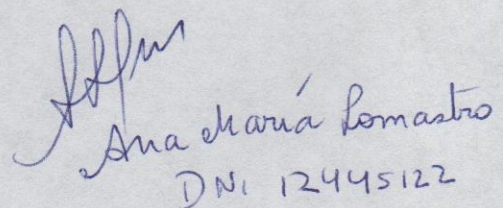 Ana María Lomastro
DNI 12445122